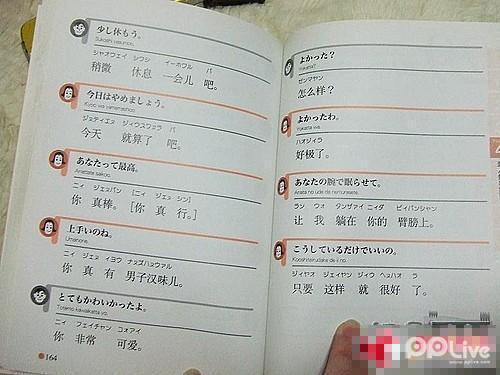 少し休もう。
Sukoshi yasumoo.
シャオウェイ シウシ イーホウル バ
稍微 休息 一会儿 吧。
今日はやめましょう。
Kyoo wa yamemashoo.
ジェティエヌ ジィウスワァラ バ
今天 就算了 吧。
あなたって最高。
Anatatte saikoo.
ニィ ジェヌバン [ニィ ジェヌ シン]
你 真棒。[你 真 行。]
上手いのね。
Umainone.
你 真 有 男子汉味儿。
とてもかわいかったよ。
Totemo kawaikatta yo.
ニィ フェイチャン コォアイ
你 非常 可爱。
164
よかった?
Yokatta?
ゼンマヤン
怎么样?
よかったわ。
Yokatta wa.
ハオジィラ
好极了。
あなたの腕で眠らせて。
Anata no ude de nemurasete.
ラン ウォ タンヅァイ ニィダ ビィバンシャン
让 我 躺在 你的 臂膀上。
こうしているだけでいいの。
Kooshiteirudake de ii no.
ジィヤオ ジェイヤン ジィウ ヘヌハオ ラ
只要 这样 就 很好 了。
PPLive